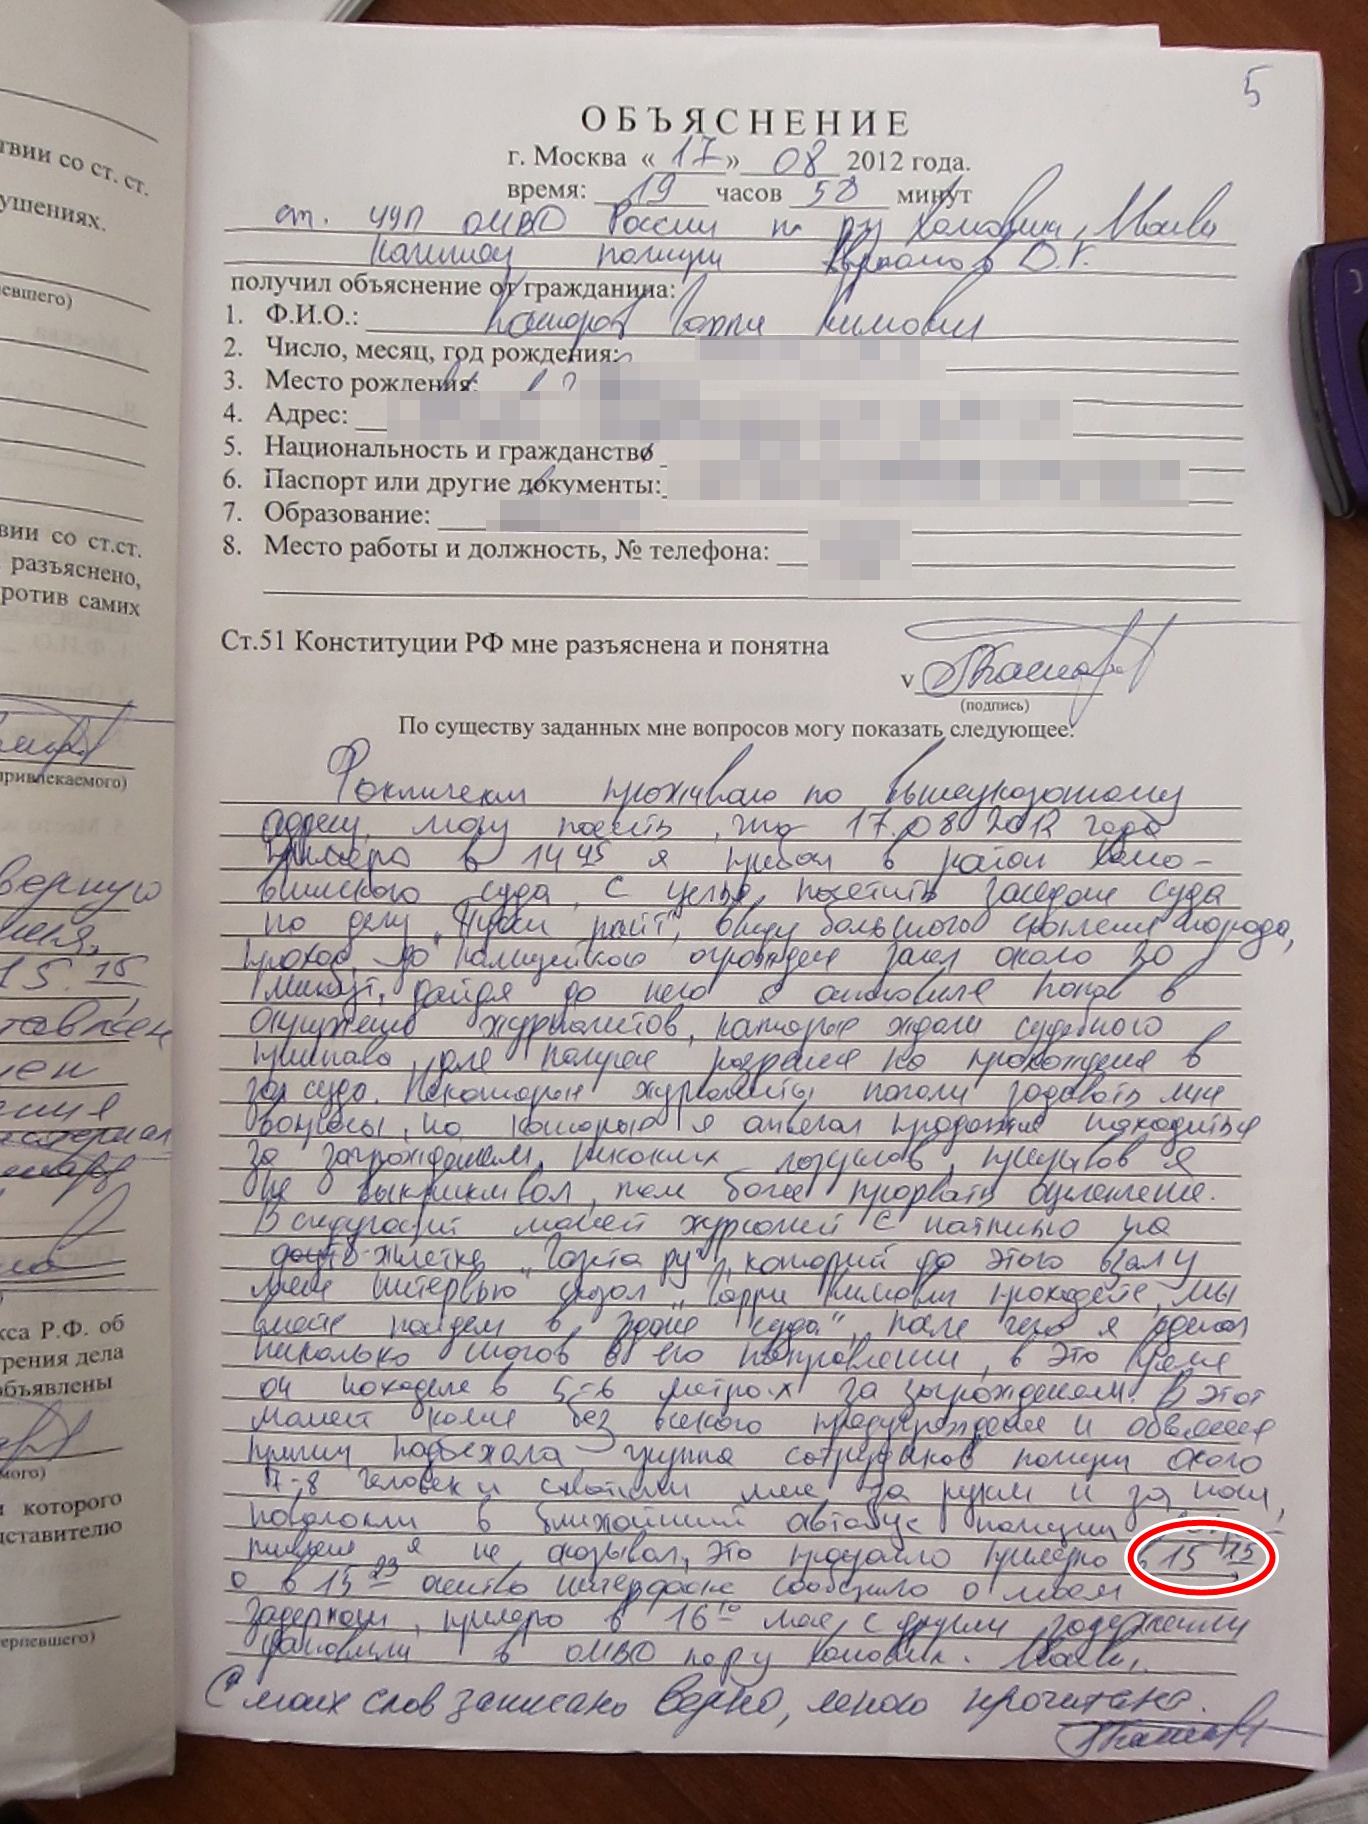 5
ОБЪЯСНЕНИЕ
г. Москва « 17 » 08 2012 года.
время: 19 часов 50 минут
ст. УУП ОМВД России по р-ну Хамовники, Москвы
капитан полиции Д.Г.
получил объяснение от гражданина:
1. Ф.И.О.: Каспаров Гарри Кимович
2. Число, месяц, год рождения:
3. Место рождения:
4. Адрес:
5. Национальность и гражданство
6. Паспорт или другие документы:
7. Образование:
8. Место работы и должность, № телефона:
Ст.51 Конституции РФ мне разъяснена и понятна
v ГКаспаров
(подпись)
По существу заданных мне вопросов могу показать следующее:
Фактически проживаю по вышеуказанному
адресу, могу пояснить, что 17.08.2012 года
примерно в 14 45 я прибыл в район Хамо-
внического суда, с целью посетить заседание суда
по делу "Пуси райт", ввиду большого скопления народа,
проход до полицейского ограждения занял около 20
минут, дойдя до него я остановился попав в
окружение журналистов, которые ждали судебного
пристава для получения разрешения на прохождение в
зал суда. Некоторые журналисты начали задавать мне
вопросы, на которые я отвечал продолжая находиться
за заграждением, никаких лозунгов, призывов я
не выкрикивал, тем более прорвать оцепление.
В следующий момент журналист с надписью на
жилетке "Газета ру", который до этого взял у
меня интервью сказал "Гарри Кимович проходите, мы
вместе пойдем в здание суда", после чего я сделал
несколько шагов в его направлении, в это время
он находился в 5-6 метрах за заграждением. В этот
момент ко мне без всякого предупреждения и объявления
причин подбежала группа сотрудников полиции около
7-8 человек и схватили меня за руки и за ноги,
поволокли в ближайший автобус полиции, сопро-
тивления я не оказывал, это произошло примерно в 15 15
, а в 15 23 агентство интерфакс сообщило о моем
задержании, примерно в 16 10 меня с другими задержанными
доставили в ОМВД по р-ну Хамовники г. Москвы.
С моих слов записано верно, мною прочитано.
ГКаспаров
твии со ст. ст.
ушениях.
евшего)
вии со ст.ст.
разъяснено,
ротив самих
привлекаемого)
верную
15. 15
тавлен
кса Р.Ф. об
трения дела
объявлены
мого)
и которого
дставителю
терпевшего)